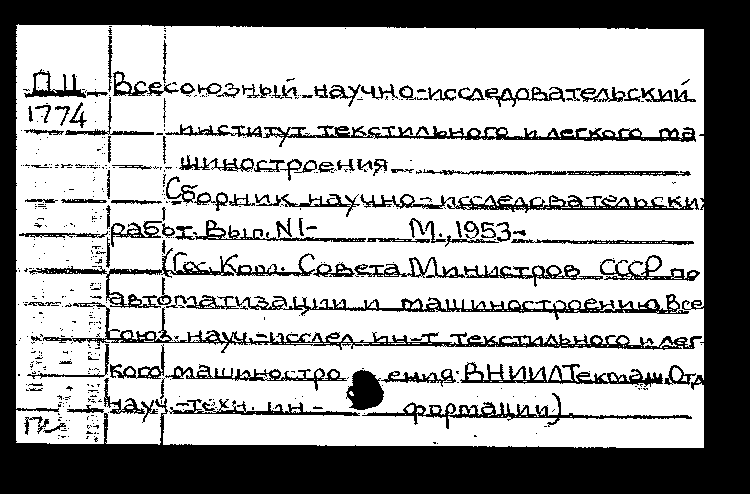 П II Всесоюзный научно-исследовательский
1774
институт текстильного и легкого ма-
шиностроения.
Сборник научно-исследовательских
работ. Вып. N1- М., 1953-
(Гос. Ком. Совета Министров СССР по
автоматизации и машиностроению. Все
союз. науч.-исслед. ин-т текстильного и лег-
кого машиностро ения. ВНИИЛТекмаш. Отд
науч.-техн. ин- формации).